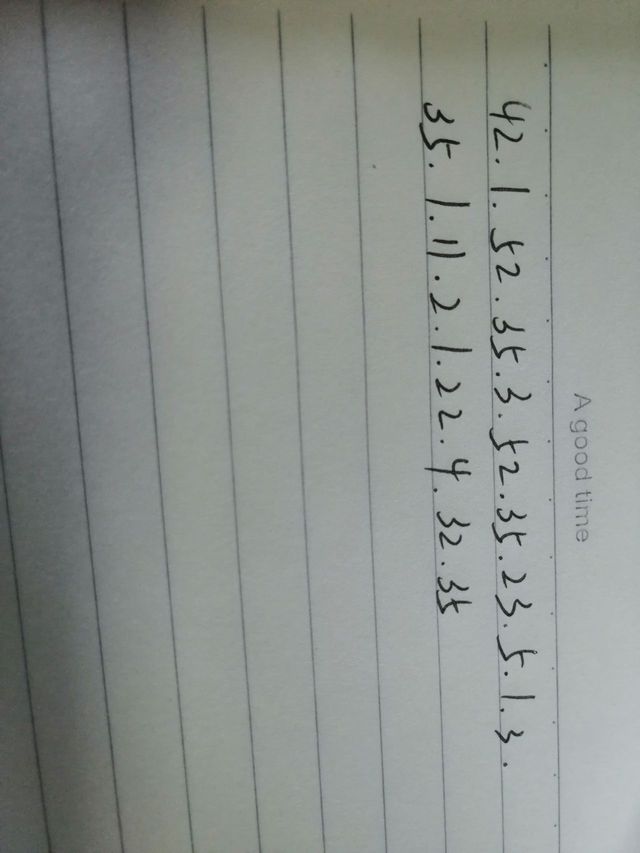 A good time
42.1.52.35.3.52.35.23.5.1.3.
35.1.11.2.1.22.4.32.35